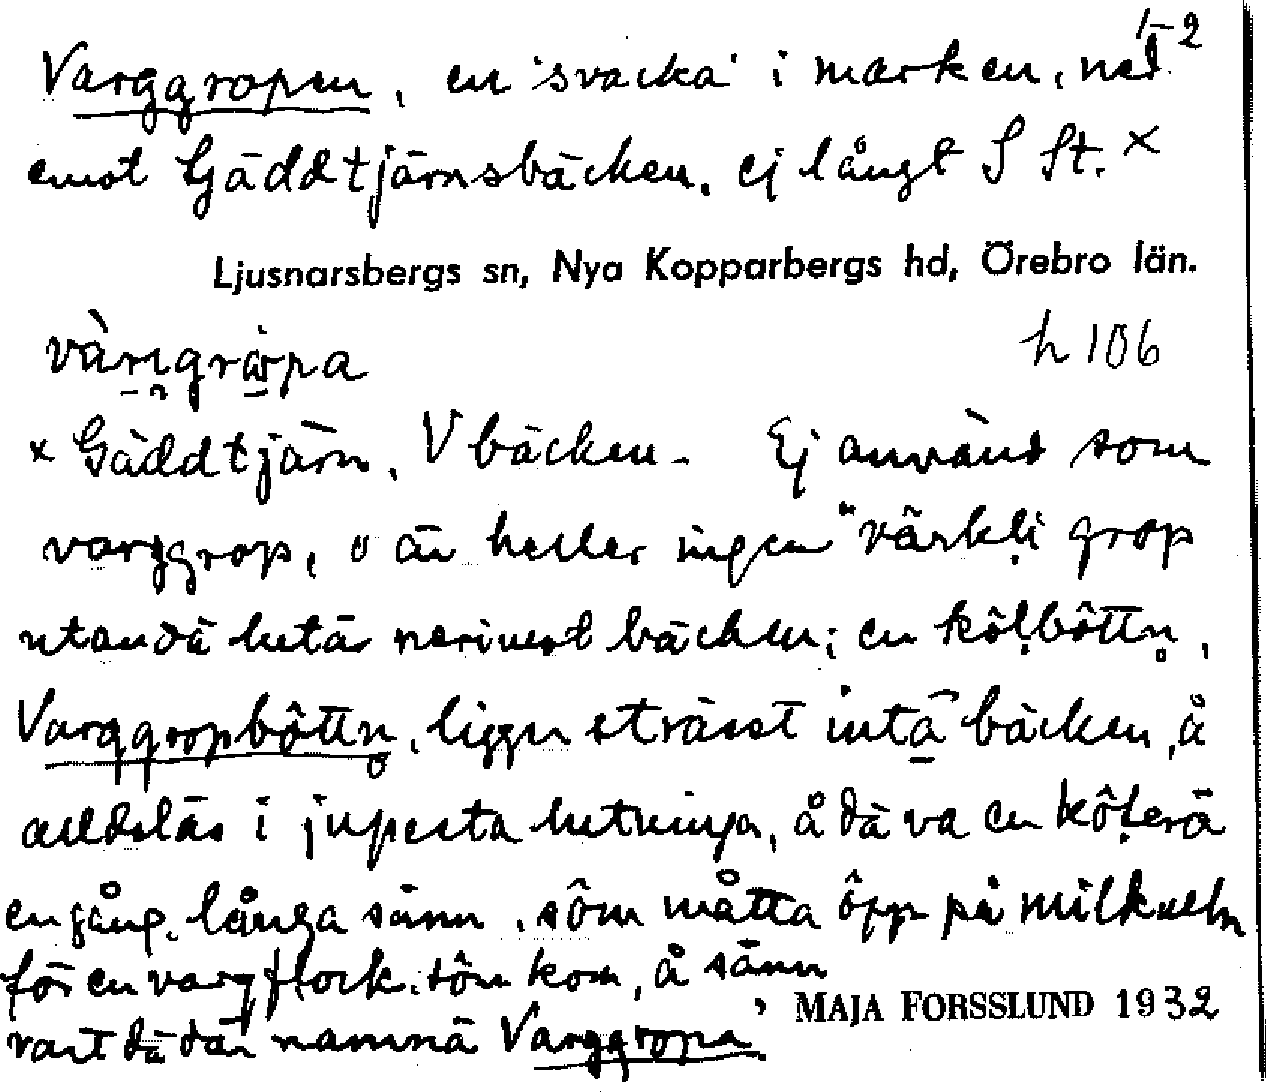 1-2
Varggropen, en 'svacka' i marken, ned
emot Gäddtjärnsbäcken, ej långt S St. ×
Ljusnarsbergs sn, Nya Kopparbergs hd, Örebro län.
h 106
× Gäddtjärn, V bäcken. Ej använd som
varggrop, o är heller ingen "värkli grop
utan dä lutär nerimot bäcken; en kôlbôttn,
Varggropbôttn, ligger strässt intä bäcken, å
alldeläs i jupesta lutninga, å dä va en kôlerä
en gång, långa sänn, sôm måtta ôpp på milkulln
för en vargflock, sôm kom, å sänn
vart dä där namnä Varggropa,
MAJA FORSSLUND 1932